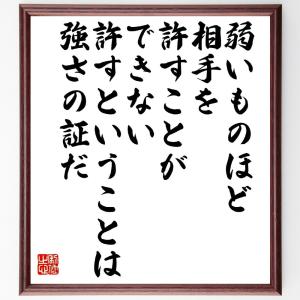 弱いものほど
相手を
許すことが
できない
許すということは
強さの証だ